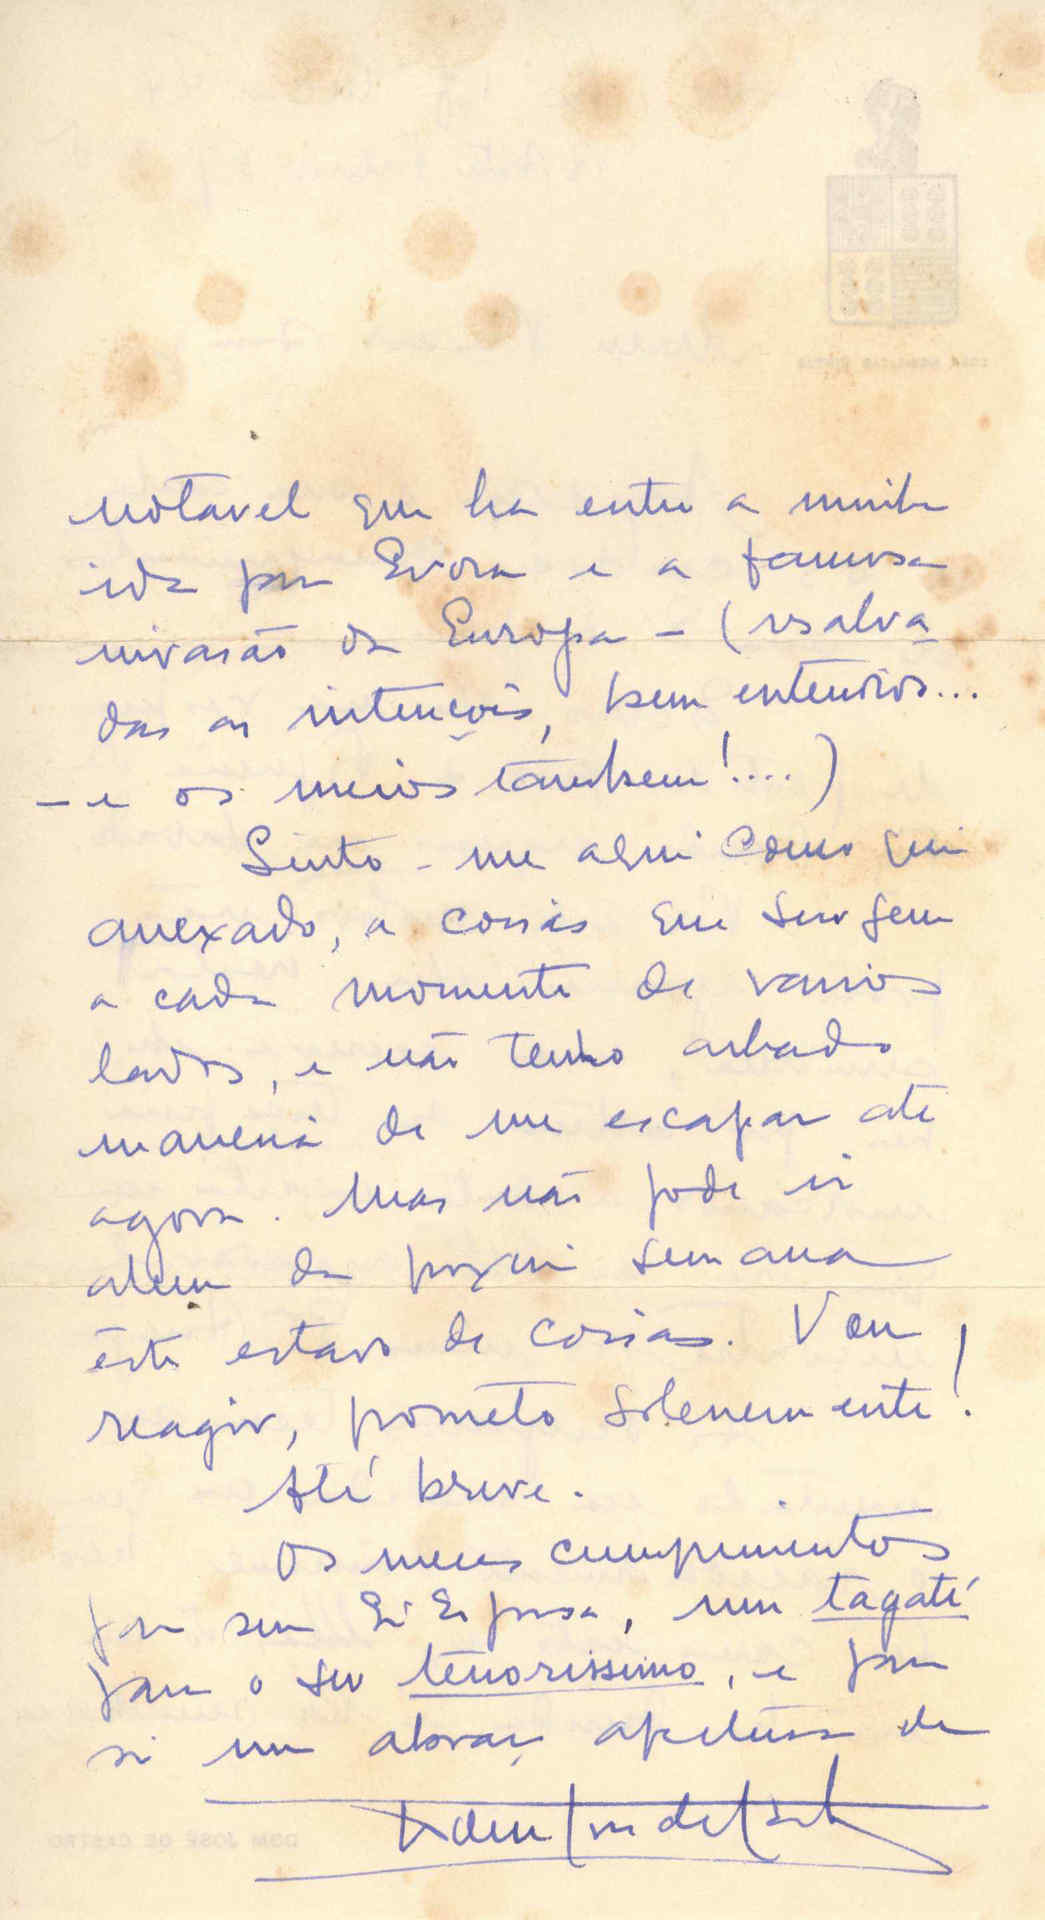 notavel que ha entre a minha
ida para Evora e a famosa
invasão da Europa - (resalva
das as intenções, bem entendido...
- e os meios tambem!....)
Sinto-me aqui como que
anexado, a coisas que surgem
a cada momento de varios
lados, e não tenho achado
maneira de me escapar até
agora. Mas não pode ir
alem da proxima semana
êste estado de coisas. Vou
reagir, prometo solenemente!
Até breve.
Os meus cumprimentos
para sua Esposa, um tagaté
para o seu tenorissimo, e para
si um abraço de
Dom José de Castro
DOM JOSÉ DE CASTRO